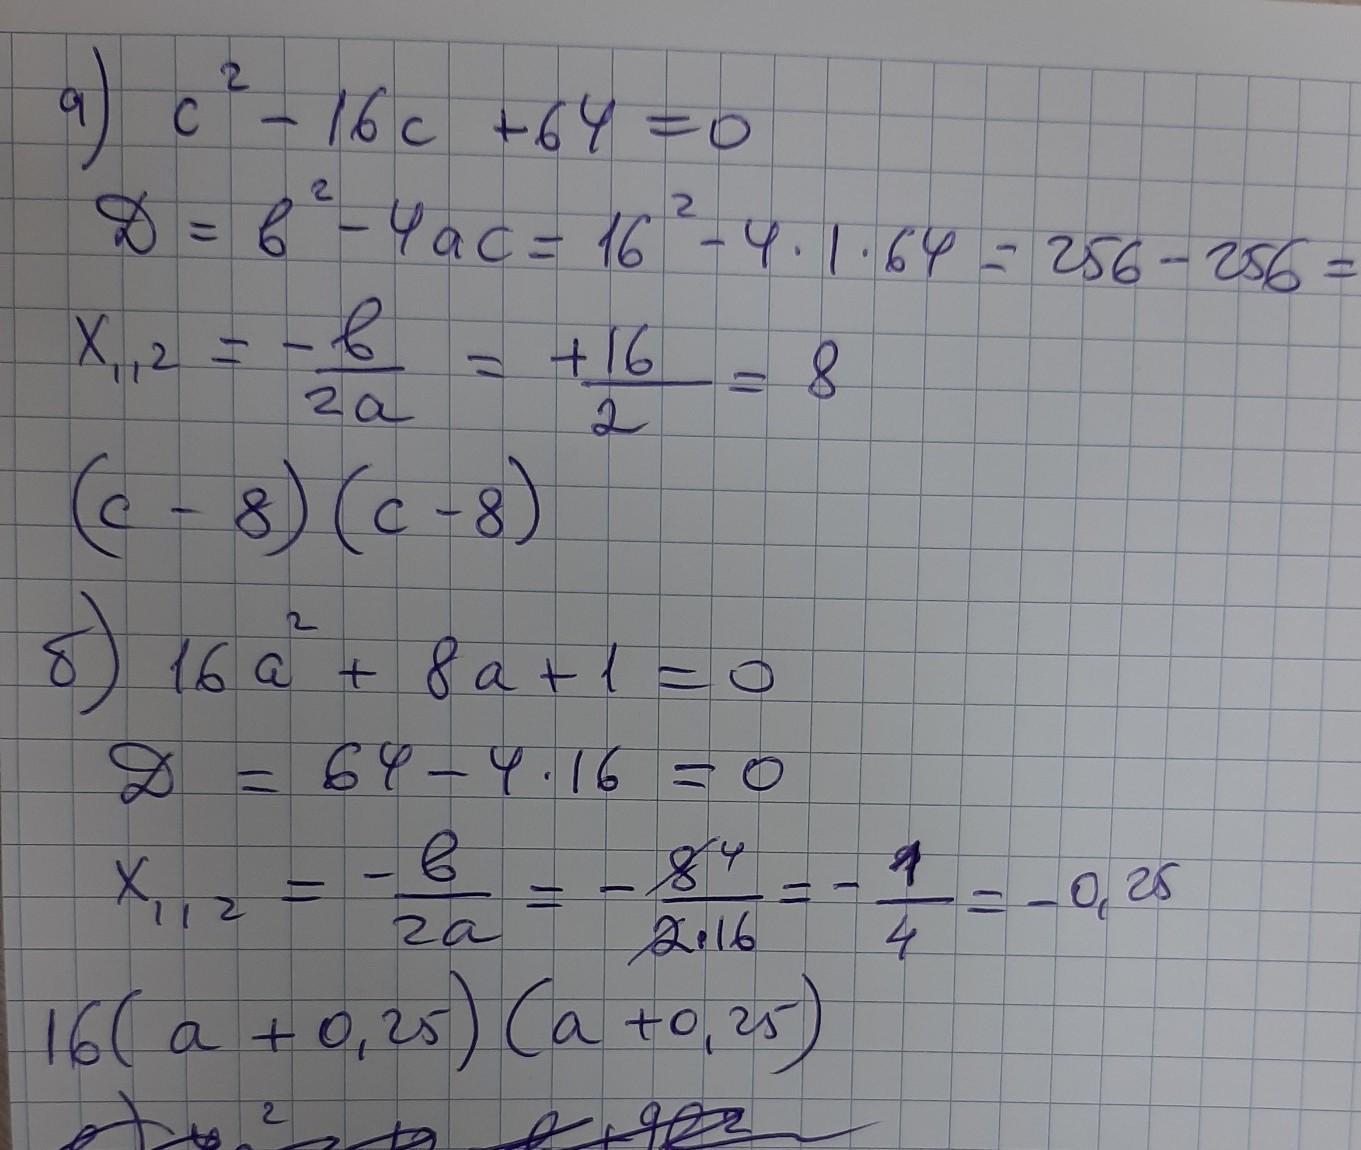 а) c² - 16c + 64 = 0
Д = в² - 4ac = 16² - 4 · 1 · 64 = 256 - 256 =
x₁,₂ = -в/2a = +16/2 = 8
(c - 8)(c - 8)
б) 16a² + 8a + 1 = 0
Д = 64 - 4 · 16 = 0
x₁,₂ = -в/2a = - 8 4/2·16 = - 1/4 = - 0,25
16(a + 0,25)(a + 0,25)